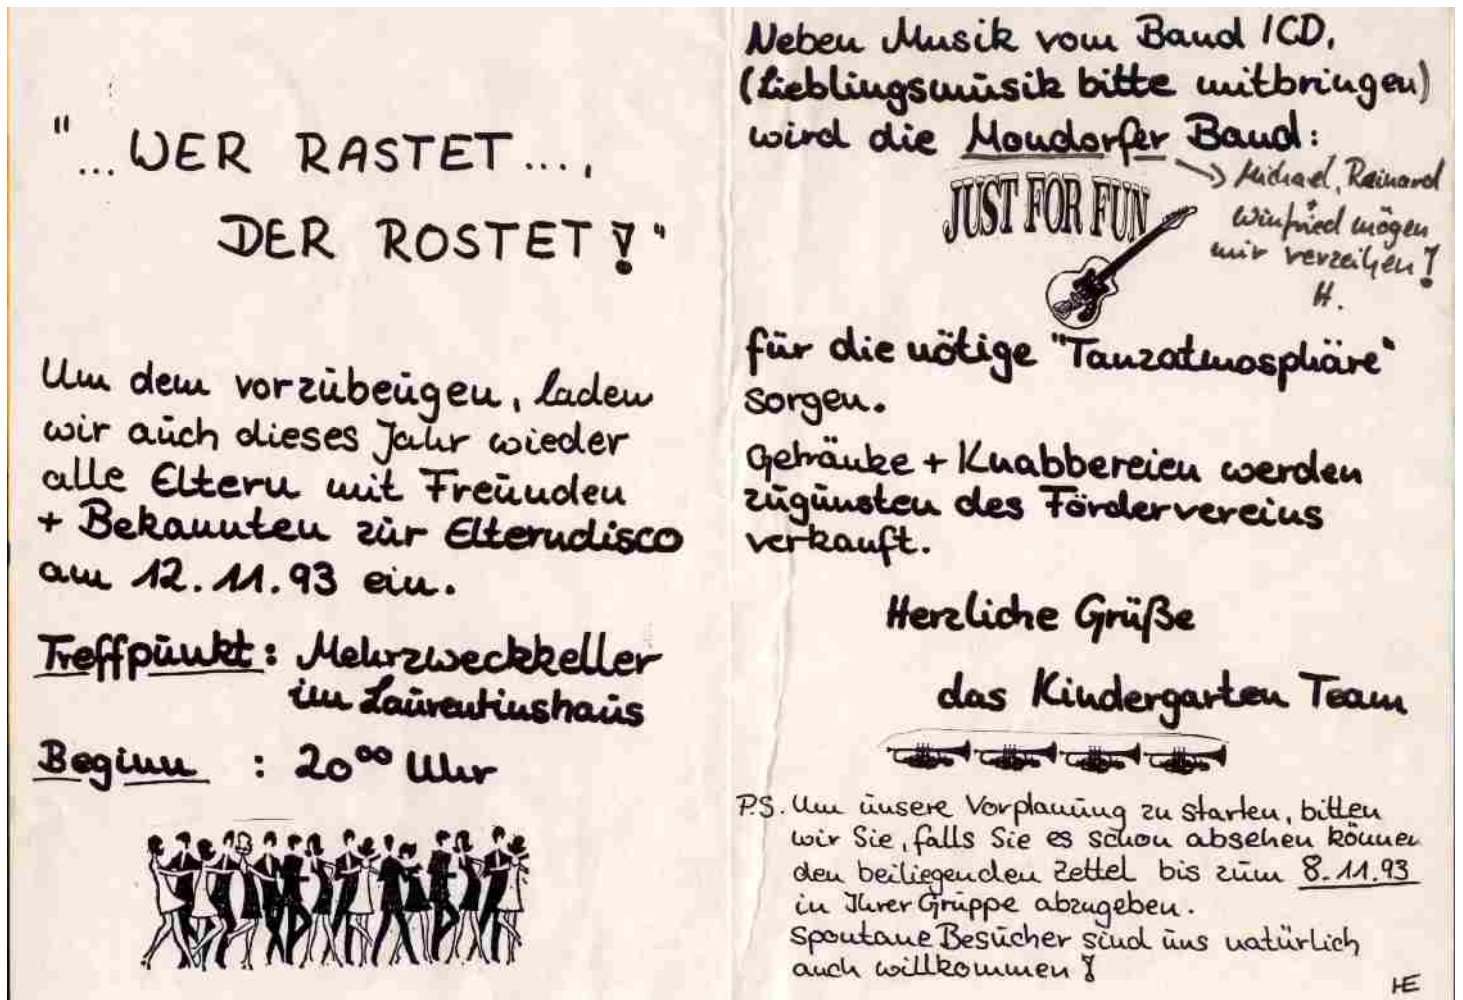 "...WER RASTET...,
DER ROSTET!"
Um dem vorzubeugen, laden
wir auch dieses Jahr wieder
alle Eltern mit Freunden
+ Bekannten zur Elterndisco
am 12.11.93 ein.
Treffpunkt: Mehrzweckkeller
im Laurentiushaus
Beginn : 20⁰⁰ Uhr
Neben Musik vom Band / CD,
(Lieblingsmusik bitte mitbringen)
wird die Mondorfer Band:
JUST FOR FUN
→ Michael, Reinard
+
Winfried mögen
mir verzeihen!
H.
für die nötige "Tanzatmosphäre"
sorgen.
Getränke + Knabbereien werden
zugunsten des Fördervereins
verkauft.
Herzliche Grüße
das Kindergarten Team
P.S. Um unsere Vorplanung zu starten, bitten
wir Sie, falls Sie es schon absehen können
den beiliegenden Zettel bis zum 8.11.93
in Ihrer Gruppe abzugeben.
Spontane Besucher sind uns natürlich
auch willkommen!
HE